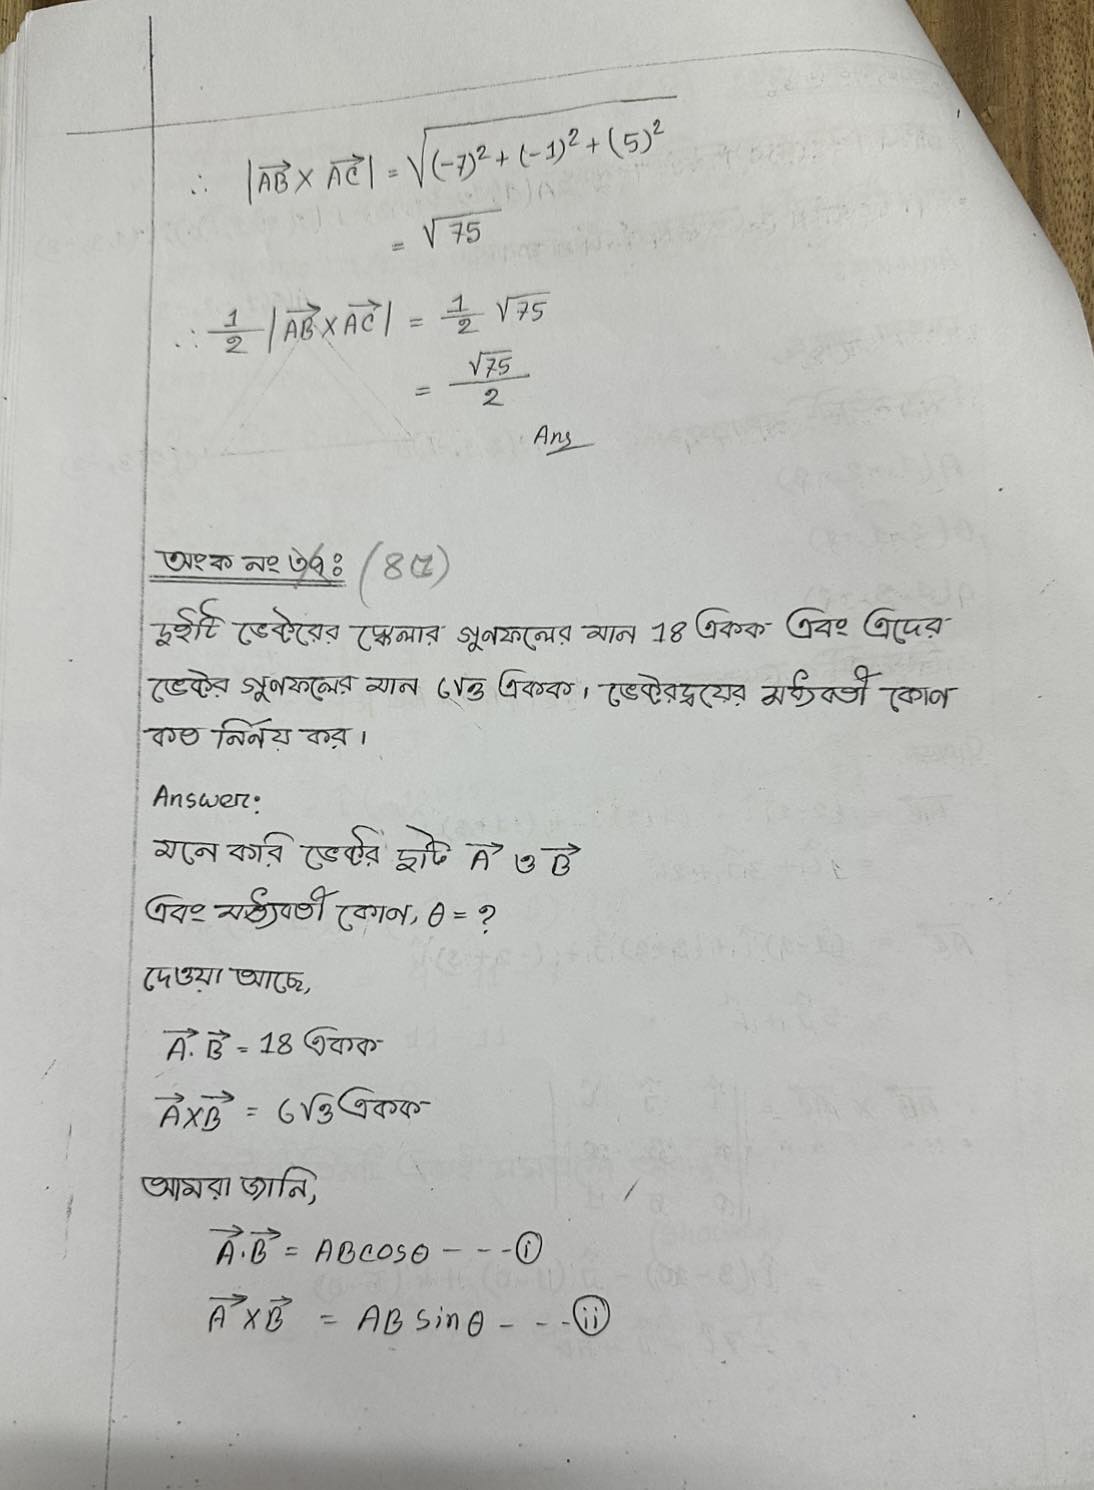 ∴ |AB⃗ × AC⃗| = √((-7)² + (-1)² + (5)²)
= √75
∴ 1/2 |AB⃗ × AC⃗| = 1/2 √75
= √75/2
Ans
অংক নং : (৪৫)
দুইটি ভেক্টরের স্কেলার গুনফলের মান 18 একক এবং এদের
ভেক্টর গুনফলের মান ৬√৩ একক। ভেক্টরদ্বয়ের মধ্যবর্তী কোন
কত নির্নয় কর।
Answer:
মনে করি ভেক্টর দুটি A⃗ ও B⃗
এবং মধ্যবর্তী কোন, θ = ?
দেওয়া আছে,
A⃗.B⃗ = 18 একক
A⃗×B⃗ = ৬√৩ একক
আমরা জানি,
A⃗.B⃗ = ABcosθ - - - ⓘ
A⃗×B⃗ = AB sinθ - - - (ii)